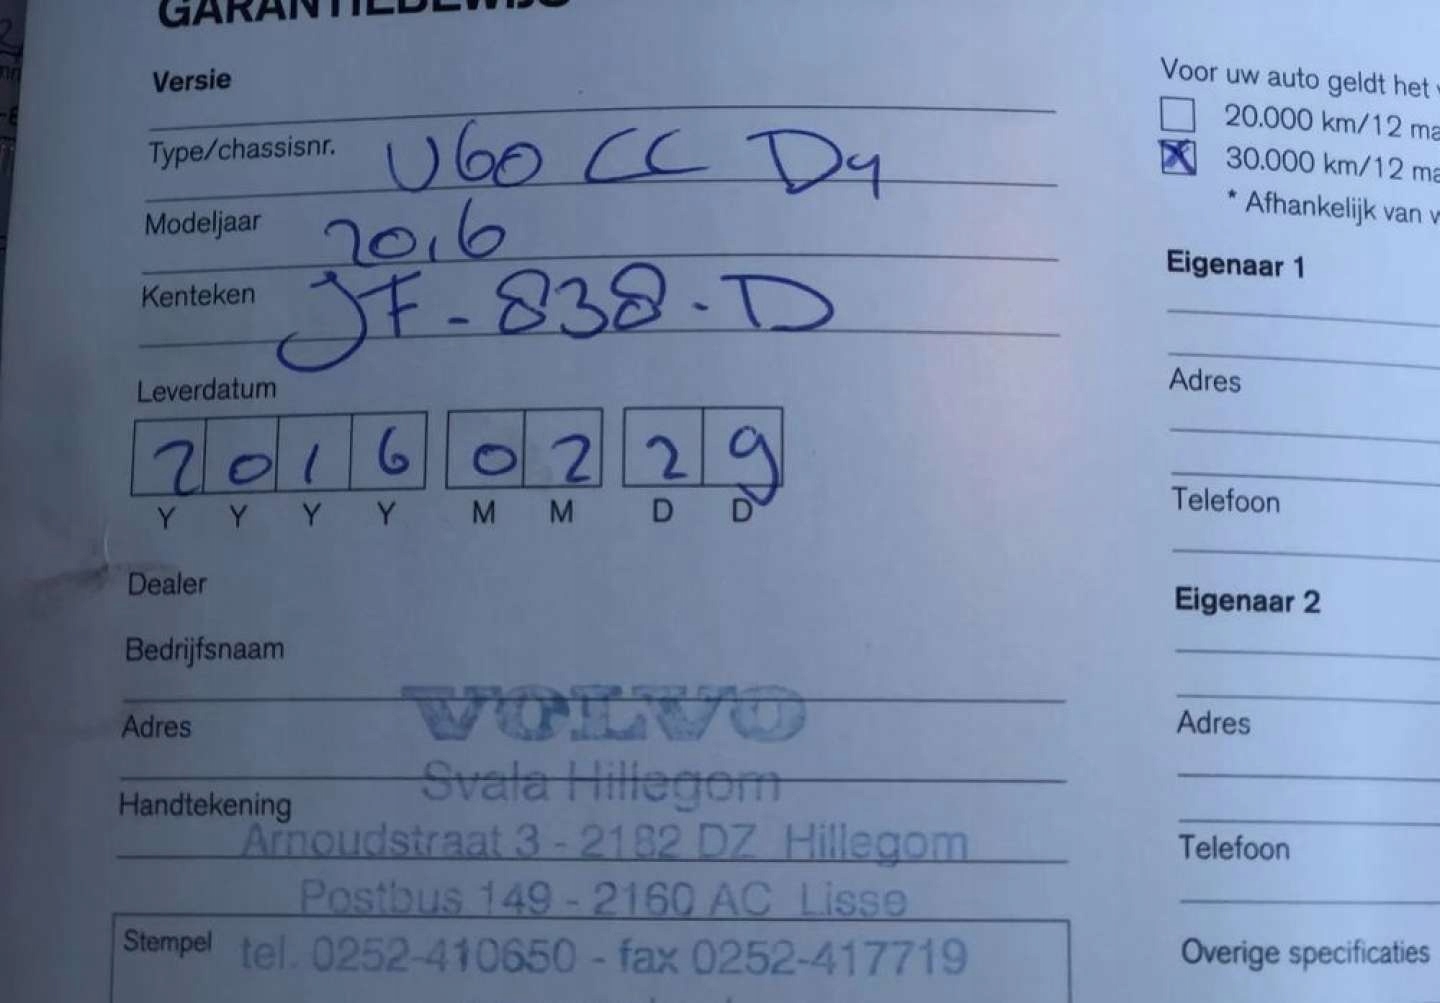 GARANTIEBEWIJS
Versie
Type/chassisnr. V60 CC D4
Modeljaar 2016
Kenteken JF-838-D
Leverdatum
2016 02 29
Y Y Y Y M M D D
Dealer
Bedrijfsnaam
VOLVO
Adres
Svala Hillegom
Handtekening
Arnoudstraat 3 - 2182 DZ Hillegom
Postbus 149 - 2160 AC Lisse
Stempel
tel. 0252-410650 - fax 0252-417719
Voor uw auto geldt het
20.000 km/12 ma
30.000 km/12 ma
* Afhankelijk van
Eigenaar 1
Adres
Telefoon
Eigenaar 2
Adres
Telefoon
Overige specificaties